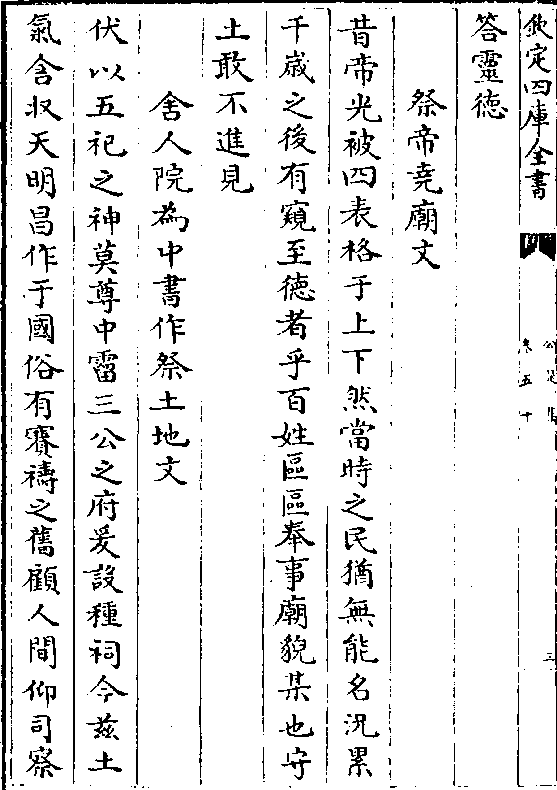 欽定四庫全書
公是集
卷五十
三
答靈德
祭帝堯廟文
昔帝光被四表格于上下然當時之民猶無能名況累
千歲之後有窺至德者乎百姓區區奉事廟貌某也守
土敢不進見
舍人院為中書作祭土地文
伏以五祀之神莫尊中霤三公之府爰設種祠今兹土
氣含收天明昌作于國俗有賽禱之舊顧人間仰司察